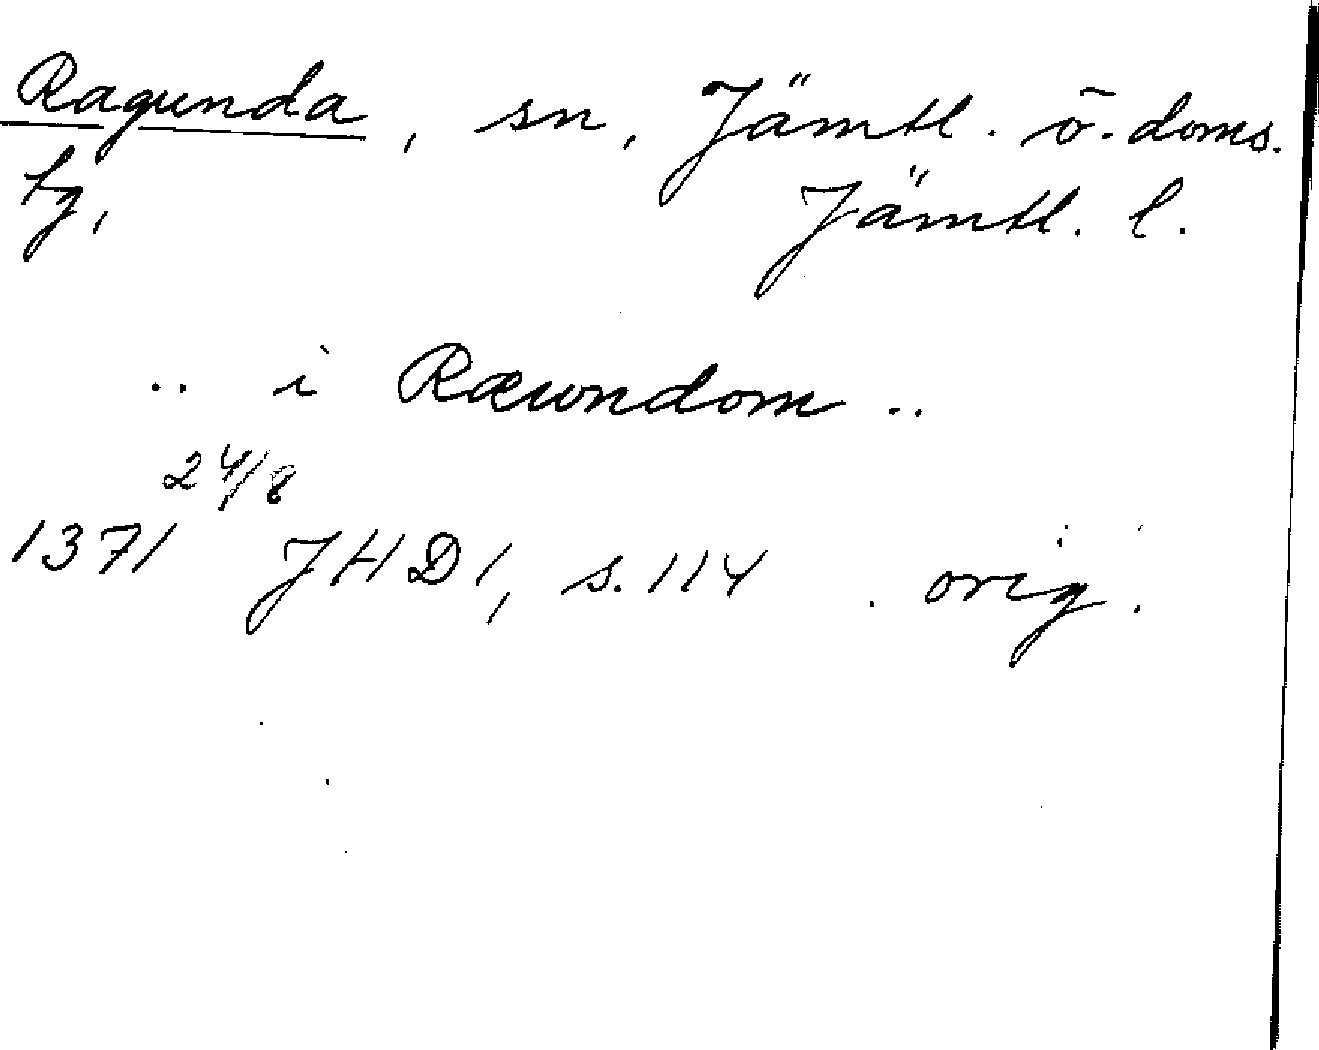 Ragunda, sn, Jämtl. ö. doms.
tg, Jämtl. l.
.. i Ræwndom ..
24/8
1371 JHD 1, s. 114 . orig.